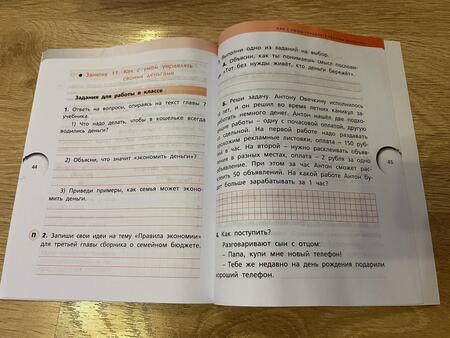 Занятие 11. Как с умом управлять
своими деньгами
Задания для работы в классе
1. Ответь на вопросы, опираясь на текст главы 7
учебника.
1) Что надо делать, чтобы в кошельке всегда
водились деньги?
2) Объясни, что значит «экономить деньги»?
3) Приведи примеры, как семья может эконо-
мить деньги.
П 2. Запиши свои идеи на тему «Правила экономии»
для третьей главы сборника о семейном бюджете.
44
Выполни одно из заданий на выбор.
А. Объясни, как ты понимаешь смысл послови-
«Тот без нужды живёт, кто деньги бережёт».
Б. Реши задачу. Антону Овечкину исполнилось
лет, и он решил во время летних каникул за-
немного денег. Антон нашёл две подхо-
работы – одну с почасовой оплатой, другую
сдельной. На первой работе надо раздавать
рекламные листовки, оплата – 150 руб-
за час. На второй – нужно расклеивать объяв-
в разных местах, оплата – 2 рубля за одно
объявление. При этом за час Антон может рас-
50 объявлений. На какой работе Антон бу-
больше зарабатывать за 1 час?
45
4. Как поступить?
Разговаривают сын с отцом:
– Папа, купи мне новый телефон!
– Тебе же недавно на день рождения подарили
хороший телефон.